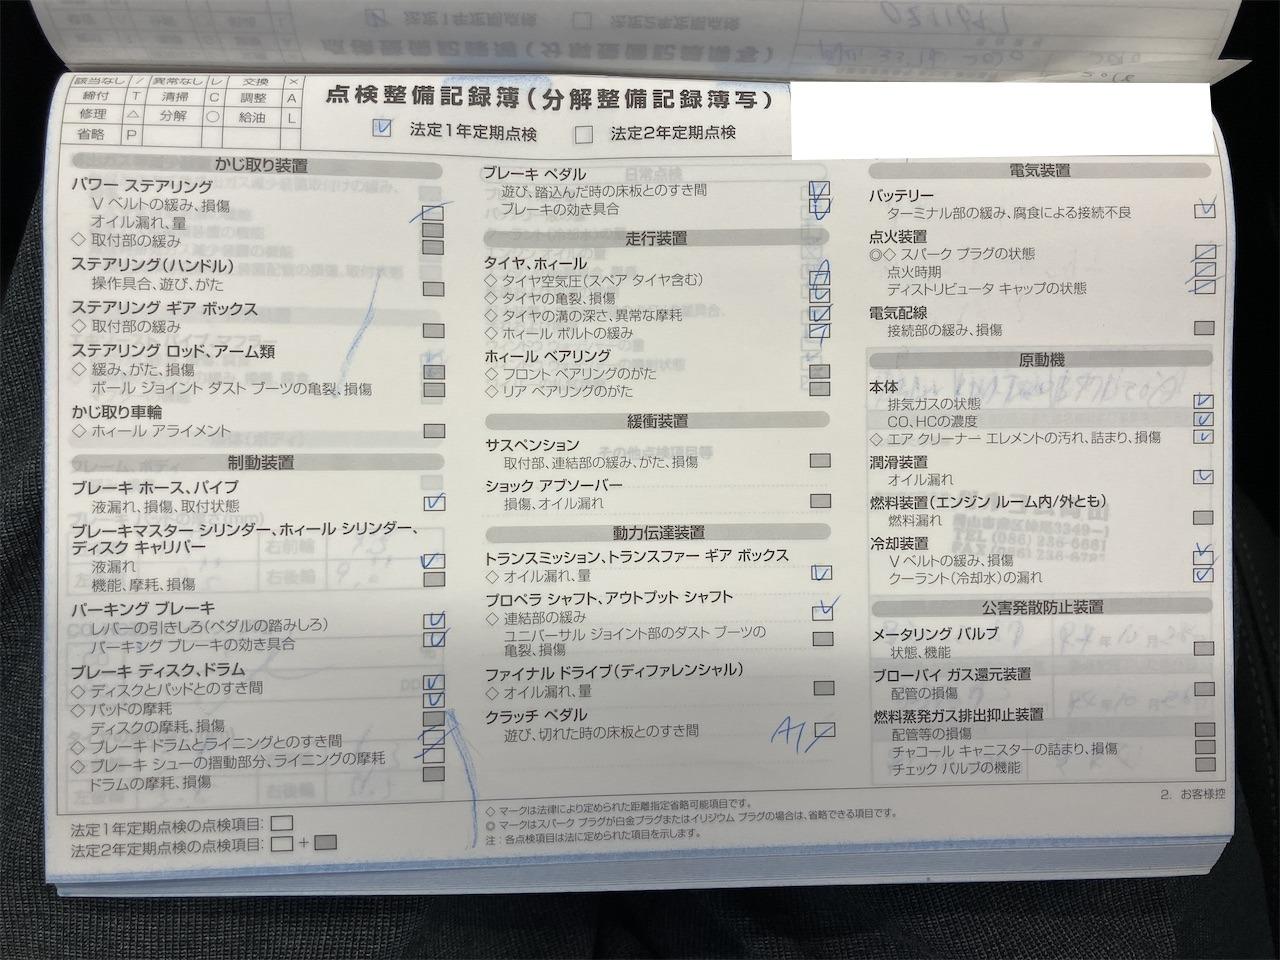 該当なし / 異常なし レ 交換 ×
締付 T 清掃 C 調整 A
修理 △ 分解 ○ 給油 L
省略 P
点検整備記録簿(分解整備記録簿写)
法定1年定期点検 法定2年定期点検
かじ取り装置
パワー ステアリング
V ベルトの緩み、損傷
オイル漏れ、量
◇ 取付部の緩み
ステアリング(ハンドル)
操作具合、遊び、がた
ステアリング ギア ボックス
◇ 取付部の緩み
ステアリング ロッド、アーム類
◇ 緩み、がた、損傷
ボール ジョイント ダスト ブーツの亀裂、損傷
かじ取り車輪
◇ ホィール アライメント
制動装置
ブレーキ ホース、パイプ
液漏れ、損傷、取付状態
ブレーキマスター シリンダー、ホィール シリンダー、
ディスク キャリパー
液漏れ
機能、摩耗、損傷
パーキング ブレーキ
レバーの引きしろ(ペダルの踏みしろ)
パーキング ブレーキの効き具合
ブレーキ ディスク、ドラム
◇ ディスクとパッドとのすき間
◇ パッドの摩耗
ディスクの摩耗、損傷
◇ ブレーキ ドラムとライニングとのすき間
◇ ブレーキ シューの摺動部分、ライニングの摩耗
ドラムの摩耗、損傷
法定1年定期点検の点検項目:
法定2年定期点検の点検項目: +
ブレーキ ペダル
遊び、踏込んだ時の床板とのすき間
ブレーキの効き具合
走行装置
タイヤ、ホィール
◇ タイヤ空気圧(スペア タイヤ含む) A
◇ タイヤの亀裂、損傷
◇ タイヤの溝の深さ、異常な摩耗
◇ ホィール ボルトの緩み T
ホィール ベアリング
◇ フロント ベアリングのがた
◇ リア ベアリングのがた
緩衝装置
サスペンション
取付部、連結部の緩み、がた、損傷
ショック アブソーバー
損傷、オイル漏れ
動力伝達装置
トランスミッション、トランスファー ギア ボックス
◇ オイル漏れ、量
プロペラ シャフト、アウトプット シャフト
◇ 連結部の緩み
ユニバーサル ジョイント部のダスト ブーツの
亀裂、損傷
ファイナル ドライブ(ディファレンシャル)
◇ オイル漏れ、量
クラッチ ペダル
遊び、切れた時の床板とのすき間 A/T
◇ マークは法律により定められた距離指定省略可能項目です。
◎ マークはスパーク プラグが白金プラグまたはイリジウム プラグの場合は、省略できる項目です。
注:各点検項目は法に定められた項目を示します。
電気装置
バッテリー
ターミナル部の緩み、腐食による接続不良
点火装置
◎◇ スパーク プラグの状態
点火時期
ディストリビュータ キャップの状態
電気配線
接続部の緩み、損傷
原動機
本体
排気ガスの状態
CO、HCの濃度
◇ エア クリーナー エレメントの汚れ、詰まり、損傷
潤滑装置
オイル漏れ
燃料装置(エンジン ルーム内/外とも)
燃料漏れ
冷却装置
V ベルトの緩み、損傷
クーラント(冷却水)の漏れ
公害発散防止装置
メータリング バルブ
状態、機能
ブローバイ ガス還元装置
配管の損傷
燃料蒸発ガス排出抑止装置
配管等の損傷
チャコール キャニスターの詰まり、損傷
チェック バルブの機能
2. お客様控